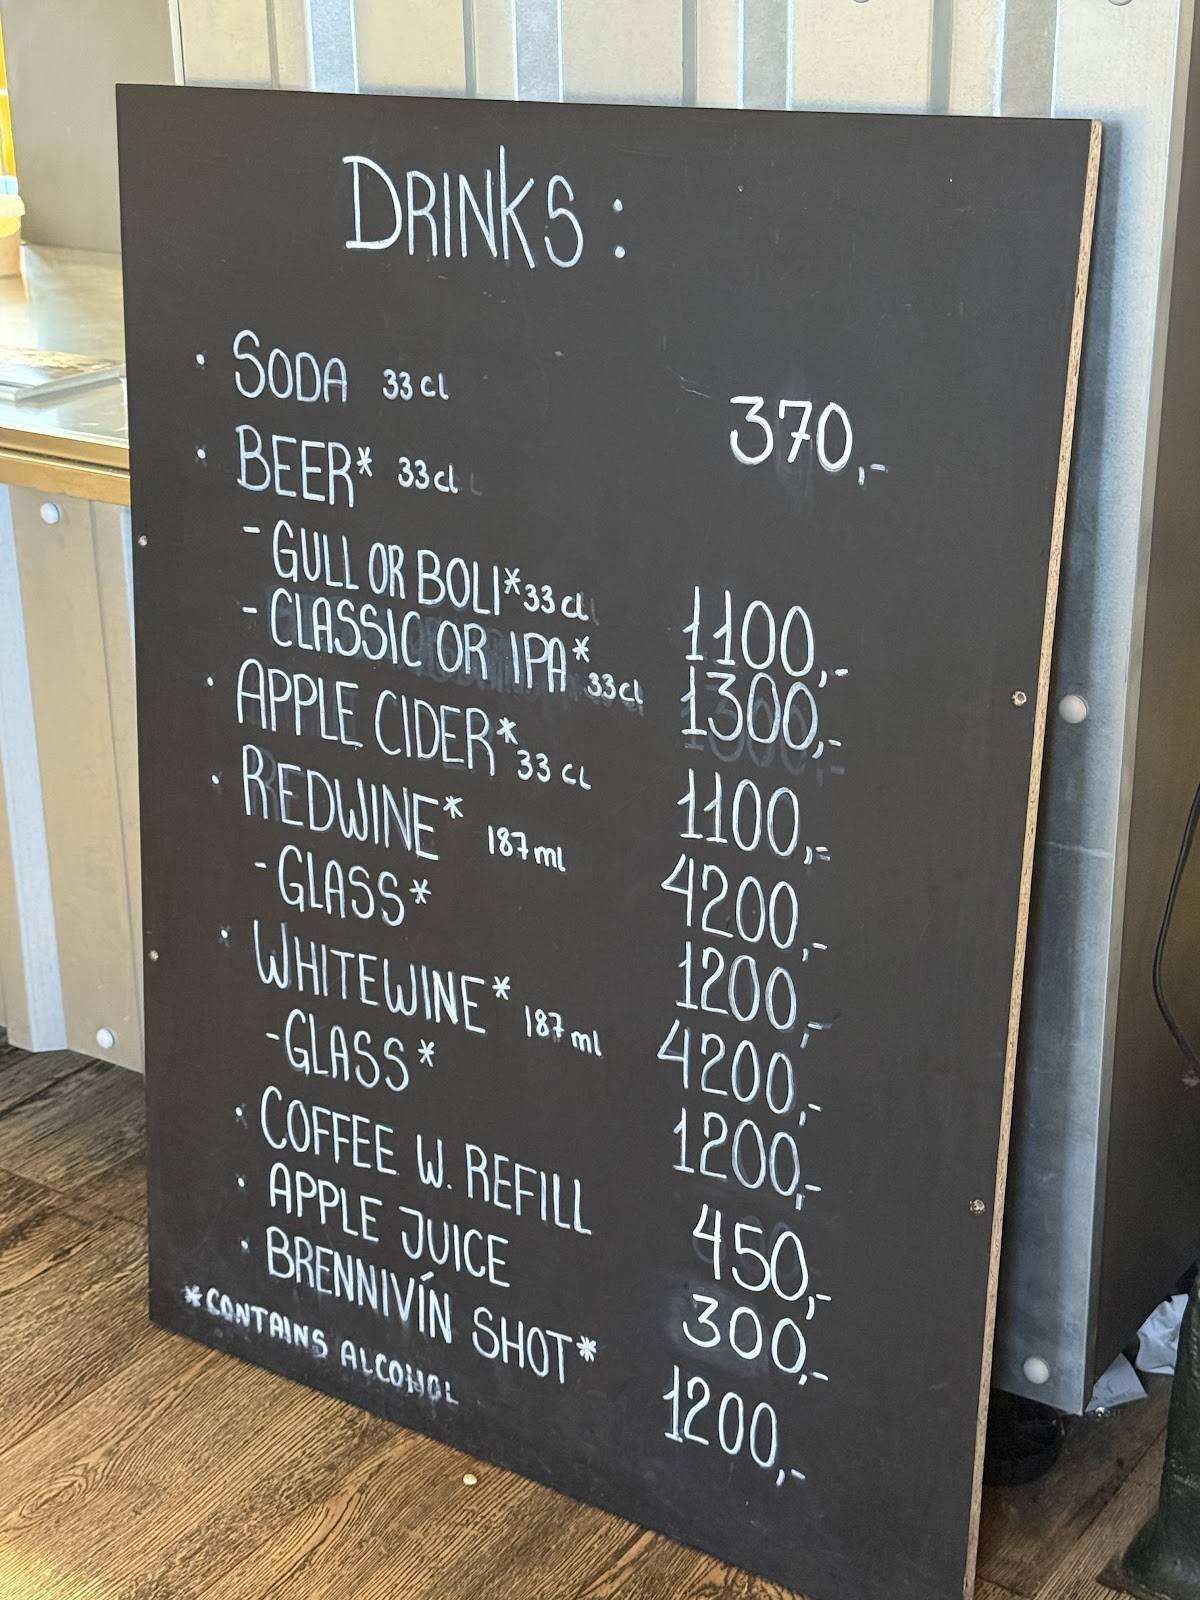 DRINKS :
· SODA 33 cl 370,-
· BEER* 33 cl
- GULL OR BOLI* 33 cl 1100,-
- CLASSIC OR IPA* 33 cl 1300,-
· APPLE CIDER* 33 CL 1100,-
· REDWINE* 187 ml 4200,-
- GLASS* 1200,-
· WHITEWINE* 187 ml 4200,-
- GLASS* 1200,-
· COFFEE W. REFILL 450,-
· APPLE JUICE 300,-
· BRENNIVÍN SHOT* 1200,-
*CONTAINS ALCOHOL